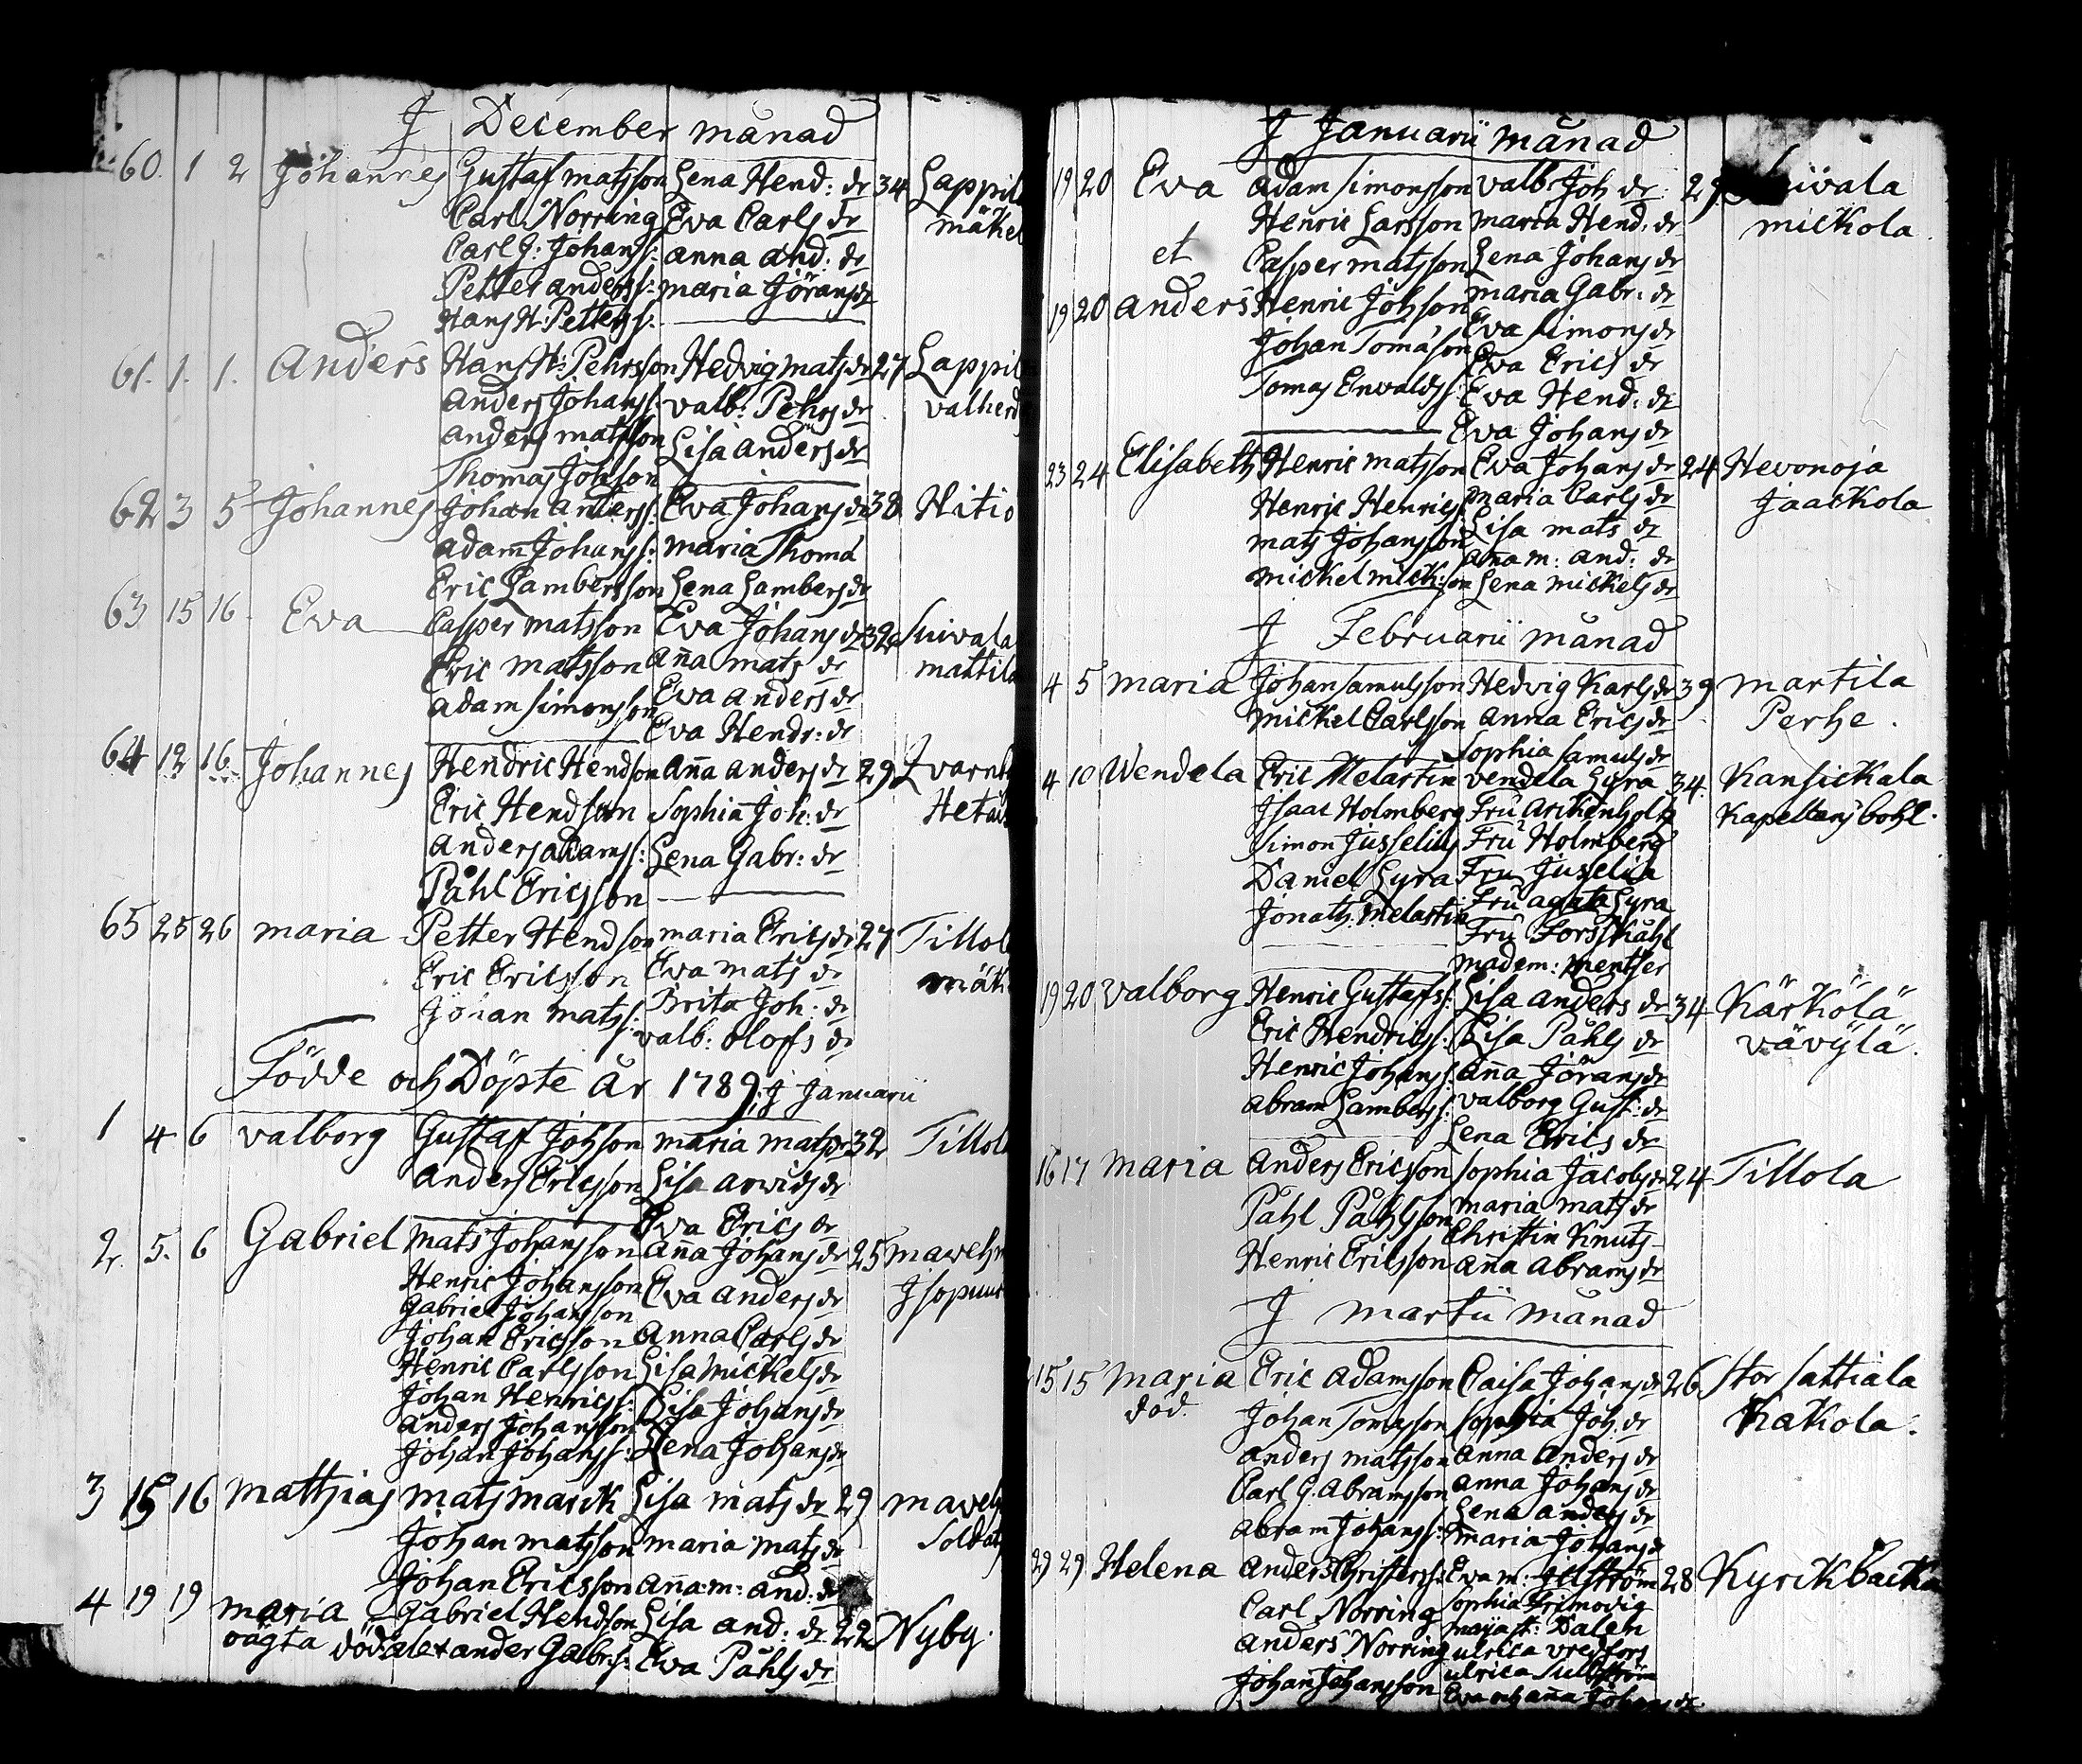 J December månad
60. 1 2 Johannes Gustaf matsson Lena Hend: dr 34 Lappil
Carl Norring Eva Carls dr mäkel
Carl G: Johanss: anna and: dr
Petter anderss: maria Jörans dr
Hans H: Petterss:
61. 1. 1. Anders Hans H: Pehrsson Hedvig mats dr 27 Lappil
Anders Johanss: valb: Pehrs dr valherd
anders matsson Lisa anders dr
Thomas Johsson
62 3 5 Johannes Johan anterss: Eva Johans dr 38 Hitio
adam Johanss: maria Thoma
Eric Lambertsson Lena Lambers dr
63 15 16 Eva Casper matsson Eva Johans dr 32 Suivala
Eric matsson Aña mats dr mattila
adam simonsson Eva anders dr
Eva Hendr: dr
64 12 16 Johannes Hendric Hendson Aña anders dr 29 Qvarnby
Eric Hendson Sophia Joh: dr Hetai
anders adamss: Lena Gabr: dr
Påhl Ericsson
65 25 26 maria Petter Hendson maria Erics dr 27 Tillol
Eric Ericsson Eva mats dr mäk
Johan matss: Brita Joh: dr
valb: olofs dr
Födde och Döpte år 1789; j Januarii
1 4 6 valborg Gustaf Johsson maria mats dr 32 Tillol
anders Ericsson Lisa arwids dr
Eva Erics dr
2. 5. 6 Gabriel mats Johansson aña Johans dr 25 maveh
Henric Johansson Eva anders dr Jsopuu
Gabriel Johansson
Johan Ericsson Anna Carls dr
Henric Carlsson Lisa mickels dr
Johan Henricss: Lisa Johans dr
anders Johansson
Johan Johanss: Lena Johans dr
3 15 16 mathias mats marck Lisa mats dr 29 maveh
Johan matsson maria mats dr Soldat
Johan Ericsson aña m: and: dr
4 19 19 maria Gabriel Hendson Lisa and: dr 22 Nyby.
oägta död alexander Gabr:s: Eva Påhls dr
J Januarii månad
19 20 Eva adam simonsson valb: Joh dr 29 uivala
Henric Larsson maria Hend: dr mickola
et Casper matsson Lena Johans dr
19 20 anders Henric Johsson maria Gabr: dr
Eva simons dr
Johan Tomason Eva Erics dr
Tomas Enwaldss: Eva Hend: dr
Eva Johans dr
23 24 Elisabeth Henric matsson Eva Johans dr 24 Hevonoja
Henric Henricss: maria Carls dr Jaackola
mats Johansson Lisa mats dr
aña m: and: dr
mickel mick:son Lena mickels dr
J Februarii månad
4 5 maria Johan samulsson Hedvig Karls dr 39 martila
mickel Carlsson anna Erics dr Perhe.
Sophia samuls dr
4 10 Wendela Eric Melartin vendela Lyra 34. Kansickala
Jsaac Holmberg Fru arckenholtz Kapellans bohl.
Simon Jusselius Fru Holmberg
Daniel Lyra Fru Juselia
Jonath: melartin Fru agata Lyra
Fru Forsskåhl
madem: mentser
19 20 valborg Henric Gustafss: Lisa anders dr 34 Kärkölä
Eric Hendricss: Lisa Påhls dr vävylä.
Henric Johanss: aña Jörans dr
abram Lamberss: valborg Gust: dr
Lena Erics dr
16 17 maria anders Ericsson sophia Jacobs dr 24 Tillola
Påhl Påhlsson maria mats dr
Christin Knuts
Henric Ericsson aña abrams dr
J martii månad
15 15 maria Eric adamsson Caisa Johans dr 26 Stor sattiala
död. Johan Tomasson sophia Joh: dr Kakola.
anders matsson anna anders dr
Carl G. abramsson anna Johans dr
Lena anders dr
abram Johanss: maria Johans dr
29 29 Helena anders Christerss: Eva m: Jilström 28 Kyrckbacka
Carl Norring Sophia Frimodig
anders Norring maja st: Dalen
ulrica vredfors
Johan Johansson ulrica
Eva och aña Johans dr